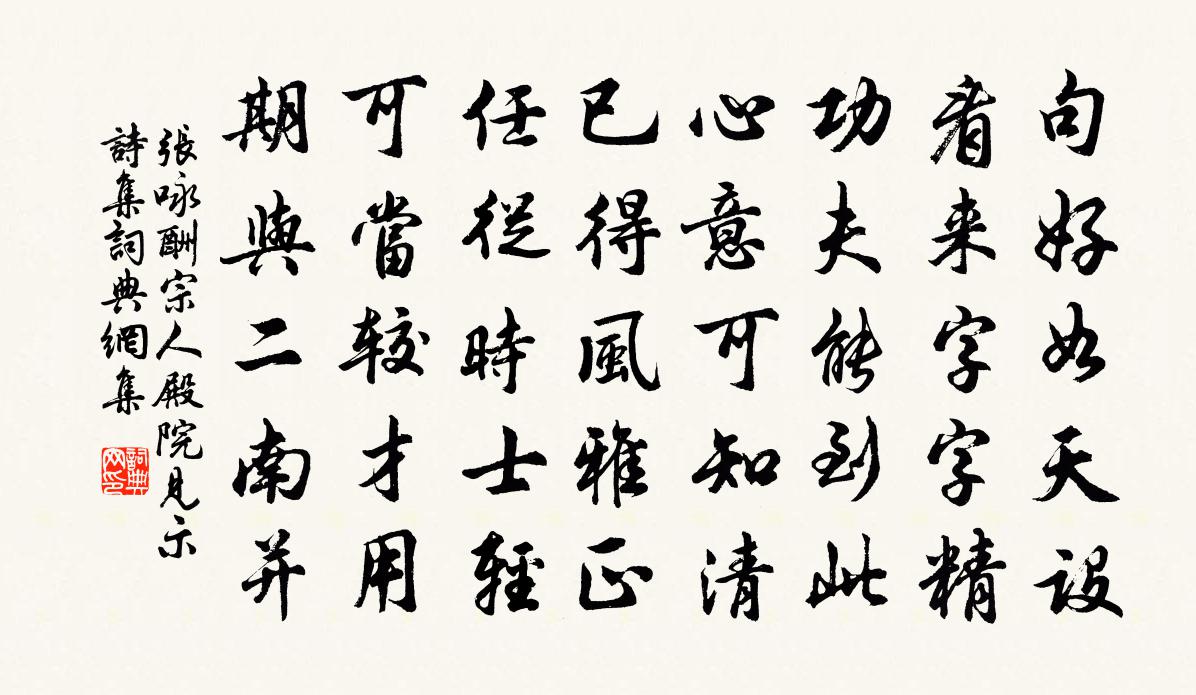 句好如天設
看来字字精
功夫能到此
心意可知清
已得風雅正
任從時士輕
可當較才用
期與二南并
張咏酬宗人殿院見示
詩集詞典網集
詞典网印